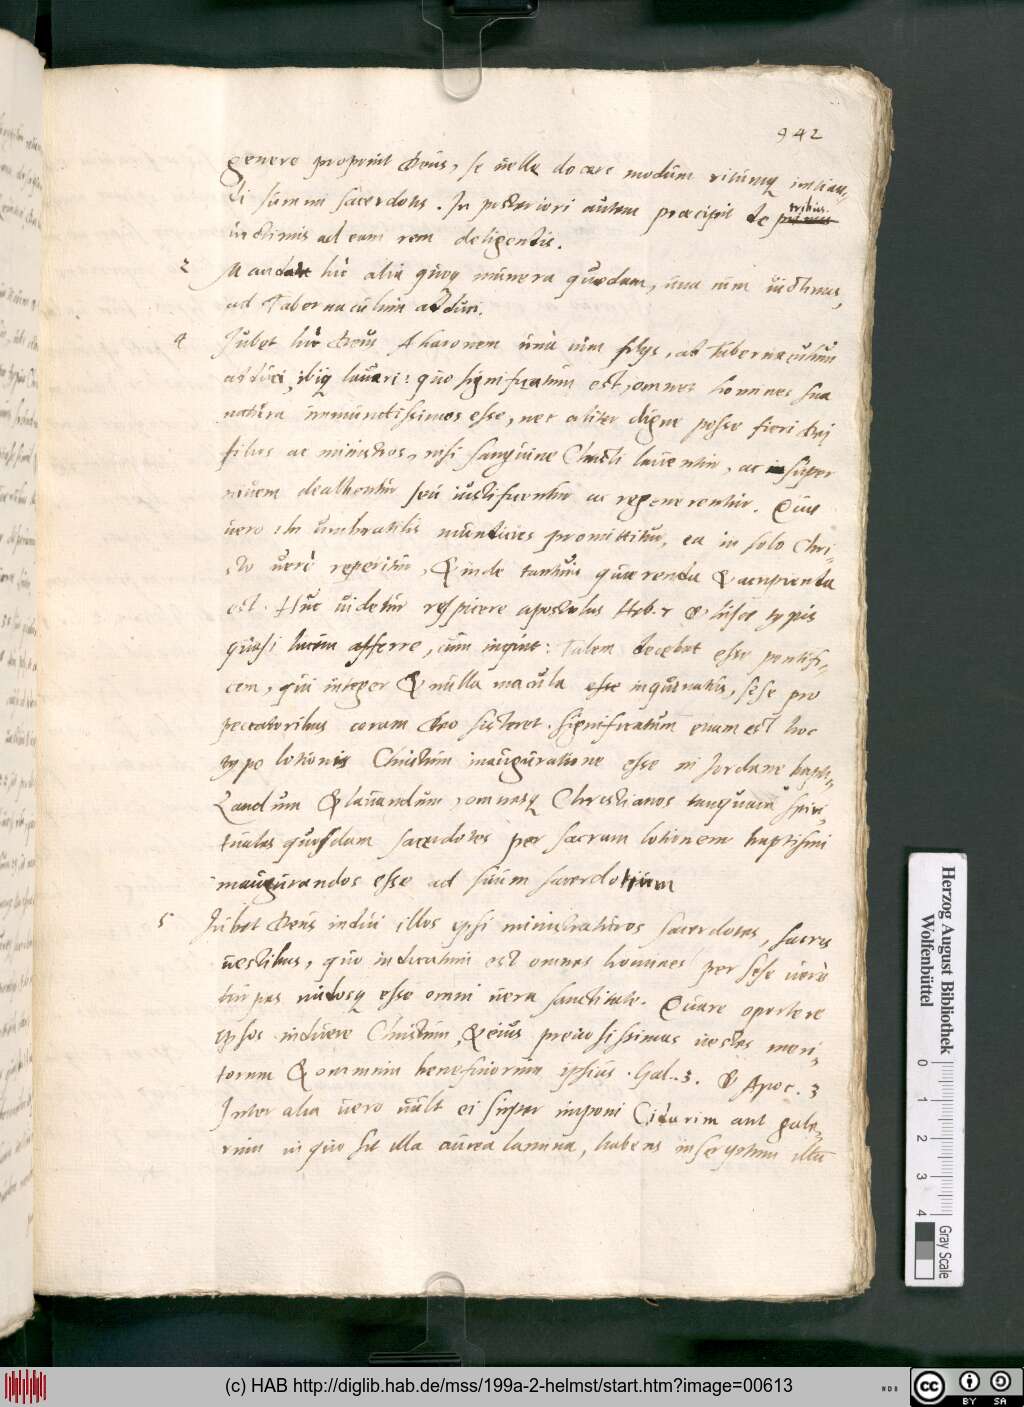 942
genere proponit Deus, se velle docere modum ritumq initian-
di summi sacerdotis. In posteriori autem praecipit de tribus
victimis ad eam rem deligendis.
Mandat hic alia quoq munera quaedam, una cum victimis,
ad Tabernaculum adduci.
4 Jubet hic Deus Aharonem unà cum filijs, ad Tabernaculum
adduci, ibiq lavari: quo significatum est, omnes homines sua
natura immundissimos esse, nec aliter digne posse fieri Dei
filios ac ministros, nisi sanguine Christi laventur, ac insuper
nivem dealbentur seu iustificentur ac regenerentur. Quae
vero in umbratilis mundicies promittitur, ea in solo Chri-
sto verè reperitur, & inde tantum quaerenda & accipienda
est. Huc videtur respicere apostolus Heb. 7 & hisce typis
quasi lucem afferre, cùm inquit: Talem decebat esse pontifi-
cem, qui integer & nulla macula inquinatus, sese pro
peccatoribus coram Deo sisteret. Significatum etiam est hoc
typo lotionis Christum inauguratione esse in Jordane bapti-
zandum & lavandum, omnesq Christianos tanquam spiri-
tuales quosdam sacerdotes per sacram lotionem baptismi
inaugurandos esse ad suum sacerdotium
5 Jubet Deus indui illos ipsi ministraturos sacerdotes, sacris
vestibus, quo indicatum est omnes homines per sese verè
turpes nudosq esse omni vera sanctitate. Quare oportere
ipsos induere Christum, & eius preciosissimas vestes meri-
torum & omnium beneficiorum ipsius. Gal. 3. & Apoc. 3
Inter alia vero vult ei super imponi Cidarim aut gale-
rum in quo sit illa aurea lamina, habens inscriptum illud
Herzog August Bibliothek
Wolfenbüttel
0
1
2
3
4
Gray Scale
(c) HAB http://diglib.hab.de/mss/199a-2-helmst/start.htm?image=00613
cc
BY SA